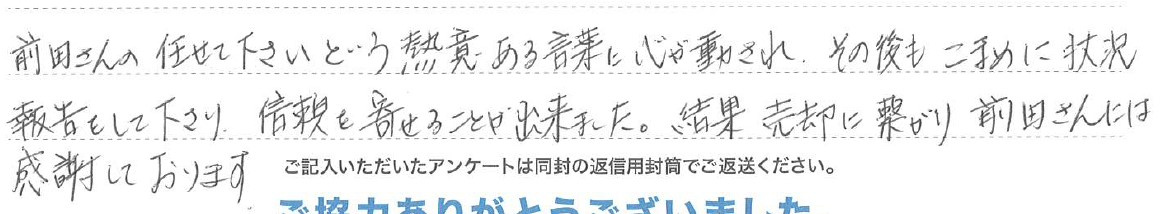 前田さんの任せて下さいという熱意ある言葉に心が動され、その後もこまめに状況
報告をして下さり、信頼を寄せることが出来ました。結果売却に繋がり前田さんには
感謝しております
ご記入いただいたアンケートは同封の返信用封筒でご返送ください。
ご協力ありがとうございました。